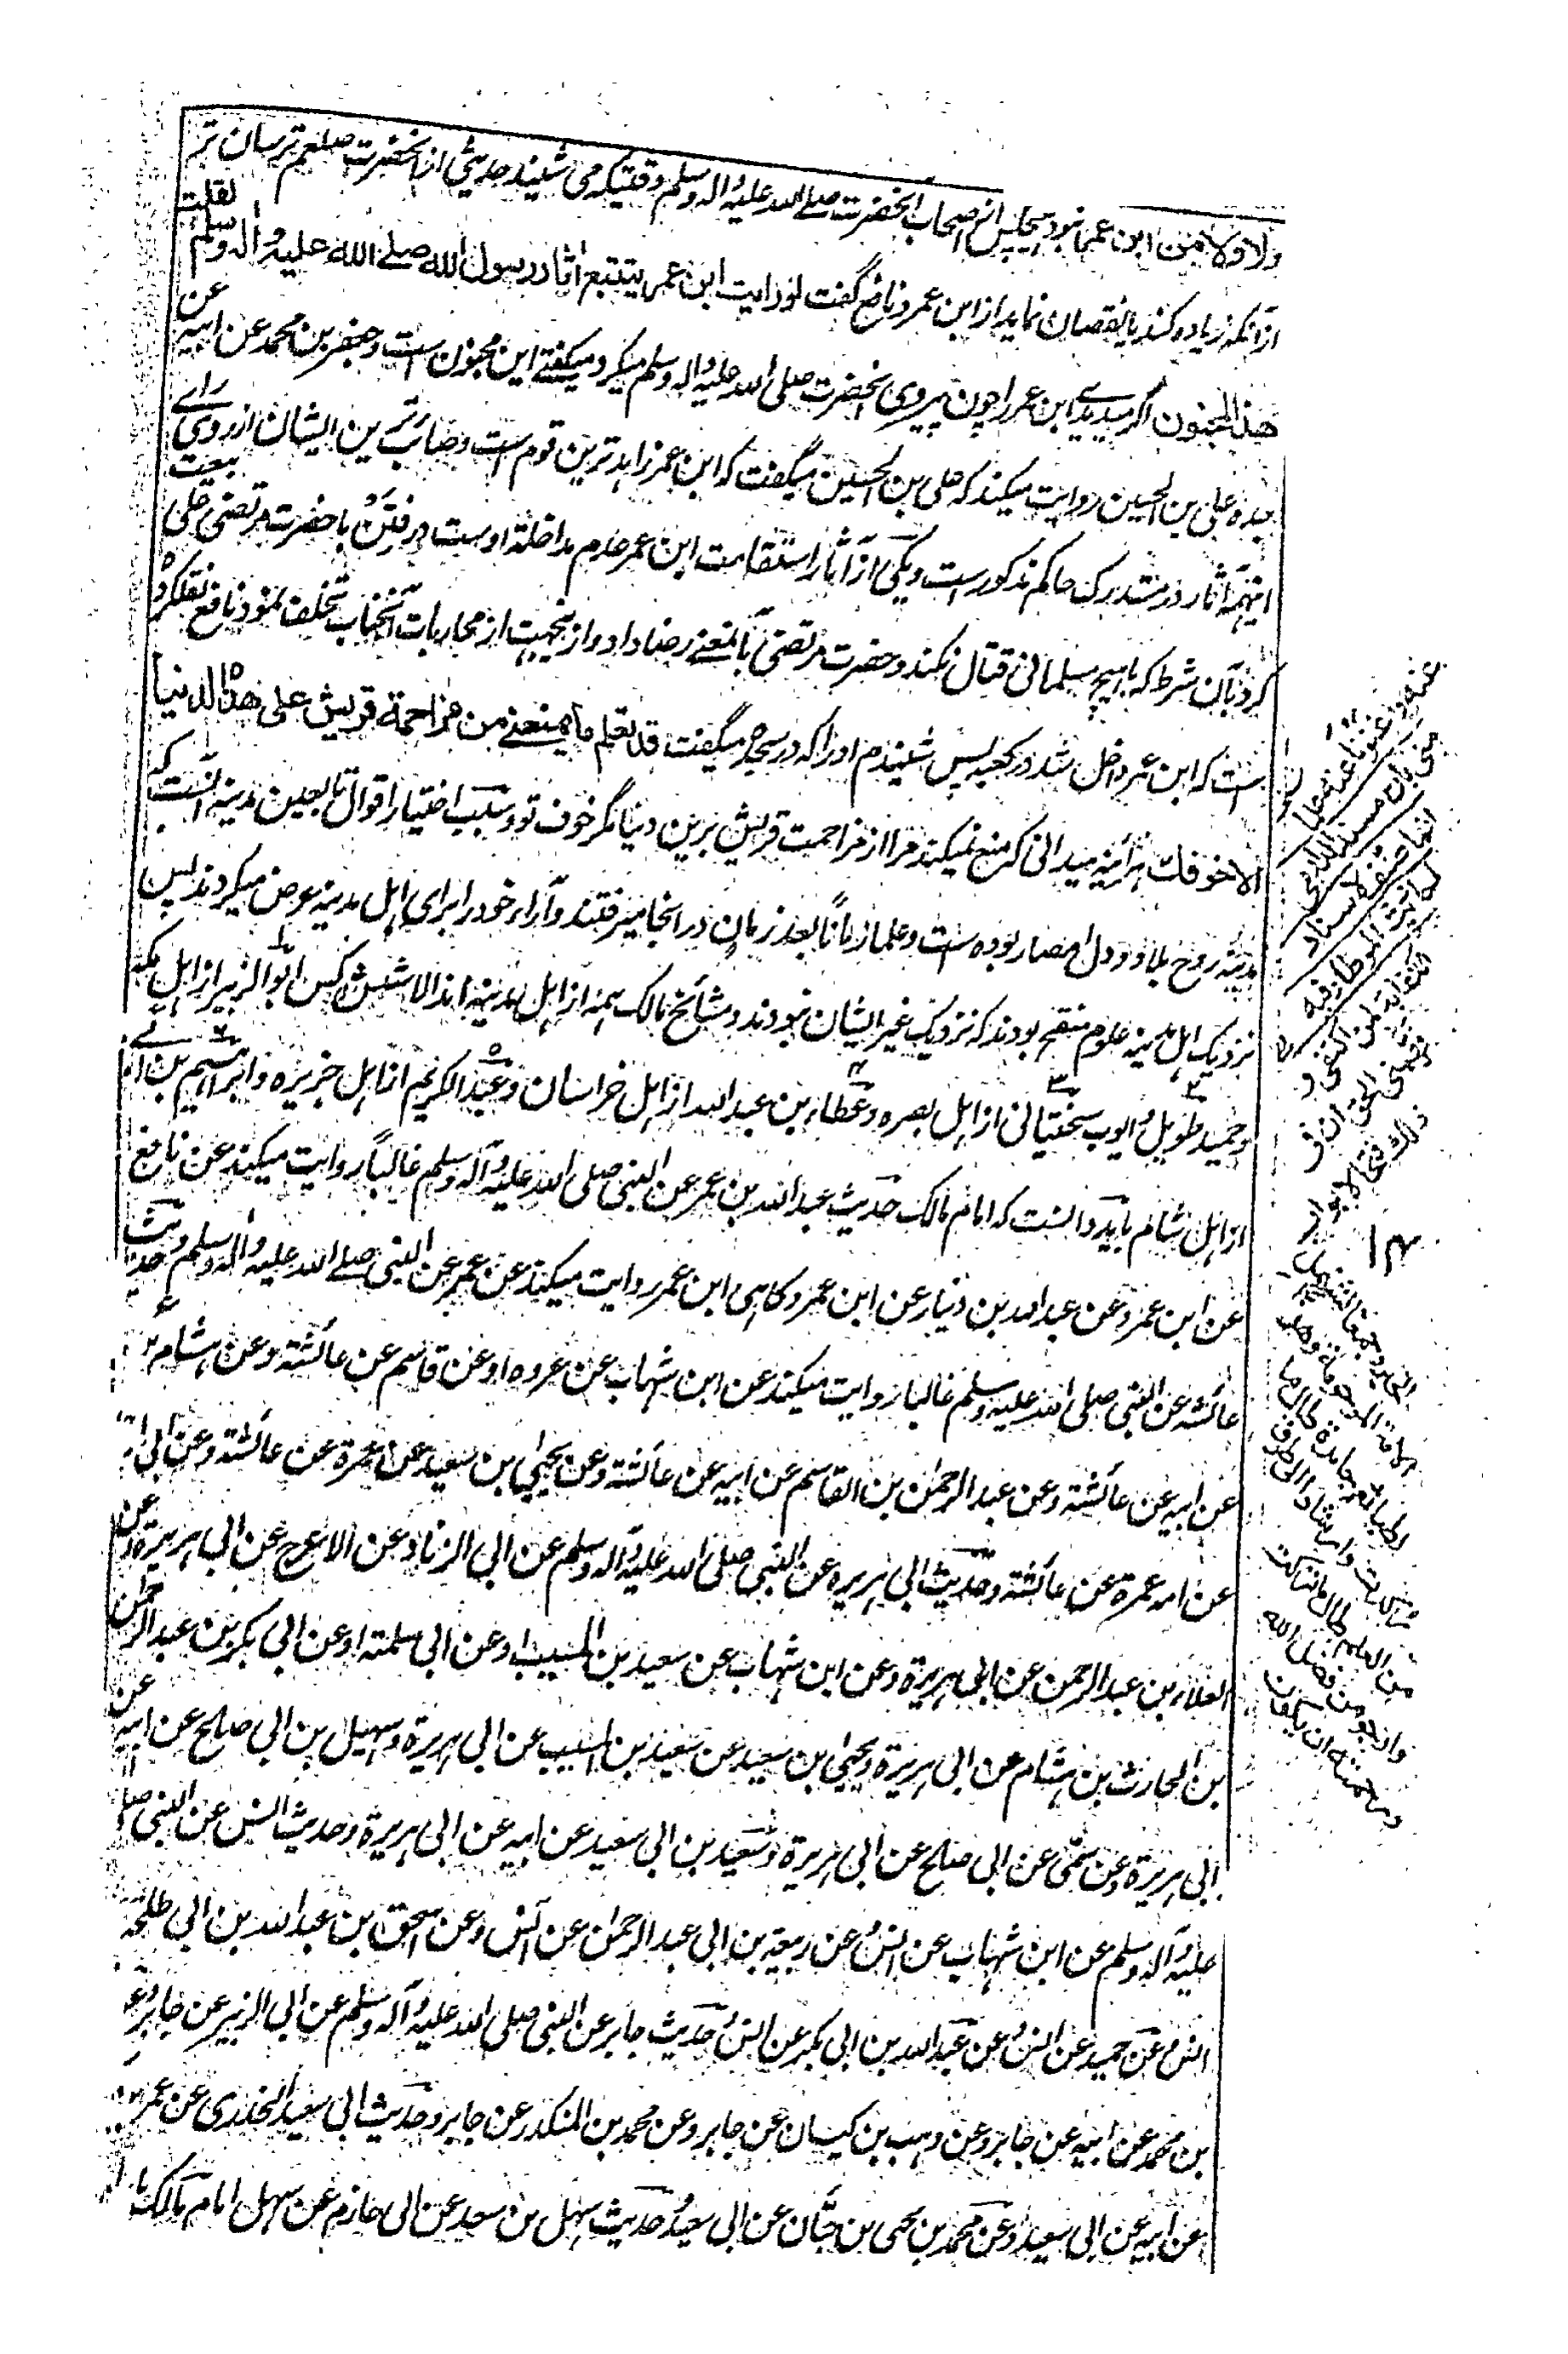 ولا ولا من ابن عمر نبود هیچکس از اصحاب آنحضرت صلے الله علیه واله وسلم وقتیکه می شنید حدیثی از آنحضرت صلعم ترسان تر
از آنکه زیاده کند یا نقصان نماید از ابن عمر و نافع گفت لو رایت ابن عمر یتتبع اثار رسول الله صلے الله علیه واله وسلم لقلت
هذا المجنون اگر میدیدے ابن عمر را چون پیروی آنحضرت صلی الله علیه واله وسلم میکرد میگفتے این مجنون ست وجعفر بن محمد عن ابیه عن
جده علی بن الحسین روایت میکند که علی بن الحسین میگفت که ابن عمر زاهد ترین قوم است وصائب ترین ایشان از روی رای
اینهمه آثار در مستدرک حاکم مذکور ست ویکی از آثار استقامت ابن عمر عدم مداخلۀ اوست در فتن با حضرت مرتضی علی بیعت
کرد بآن شرط که با هیچ مسلمانی قتال نکند وحضرت مرتضی بآنمعنے رضا داد واز ینجهت از محاربات آنجناب تخلف نمود نافع نقل کرده
است که ابن عمر داخل شد در کعبه پس شنیدم او را که در سجده میگفت قد تعلم ما یمنعنے من مزاحمة قریش علی هذه الدنیا
الا خوفک هر آئینه میدانی که منع نمیکند مرا از مزاحمت قریش برین دنیا مگر خوف تو وسبب اختیار اقوال تابعین مدینه آنست که
مدینه روح بلاد و دل امصار بوده ست وعلما زمانًا بعد زمان در آنجا میرفتند وآراء خود را برای اهل مدینه عرض میکردند پس
نزدیک اهل مدینه علوم منقح بودند که نزدیک غیر ایشان نبودند ومشائخ مالک همه از اهل مدینه اند الا شش کس ابو الزبیر از اهل مکه
وحمید طویل وایوب سختیانی از اهل بصره وعطاء بن عبد الله از اهل خراسان وعبد الکریم از اهل جزیره وابراهیم بن ابی
از اهل شام باید دانست که امام مالک حدیث عبد الله بن عمر عن النبی صلی الله علیه وآله وسلم غالبًا روایت میکند عن نافع
عن ابن عمر وعن عبد الله بن دینار عن ابن عمر وکاهی ابن عمر روایت میکند عن عمر عن النبی صلے الله علیه واله وسلم وحدیث
عائشه عن النبی صلی الله علیه وسلم غالبا روایت میکند عن ابن شهاب عن عروه او عن قاسم عن عائشة وعن هشام بن
عن ابیه عن عائشة وعن عبد الرحمن بن القاسم عن ابیه عن عائشة وعن یحیی بن سعید عن عمرة عن عائشة وعن ابی
عن امه عمرة عن عائشة وحدیث ابی هریره عن النبی صلی الله علیه وآله وسلم عن ابی الزناد عن الاعرج عن ابی هریرة وعن
العلاء بن عبد الرحمن عن ابی هریرة وعن ابن شهاب عن سعید بن المسیب او عن ابی سلمة او عن ابی بکر بن عبد الرحمن
بن الحارث بن هشام عن ابی هریرة ویحیی ابن سعید عن سعید بن المسیب عن ابی هریرة وسهیل بن ابی صلح عن ابیه عن
ابی هریرة وعن سمی عن ابی صلح عن ابی هریرة وسعید بن ابی سعید عن ابیه عن ابی هریرة وحدیث انس عن النبی صلی
علیه وآله وسلم عن ابن شهاب عن انس وعن ربیعة بن ابی عبد الرحمن عن انس وعن اسحق بن عبد الله بن ابی طلحة
انس وعن حمید عن انس وعن عبد الله بن ابی بکر عن انس وحدیث جابر عن النبی صلی الله علیه وآله وسلم عن ابی الزبیر عن جابر
بن محمد عن ابیه عن جابر وعن وهب بن کیسان عن جابر وعن محمد بن المنکدر عن جابر وحدیث ابی سعید الخدری عن
عن ابیه عن ابی سعید وعن محمد بن یحیی بن حبان عن ابی سعید وحدیث سهل بن سعد عن ابی حازم عن سهل امام مالک
من العلم
وارجو من فضل الله
ورحمته ان یکون